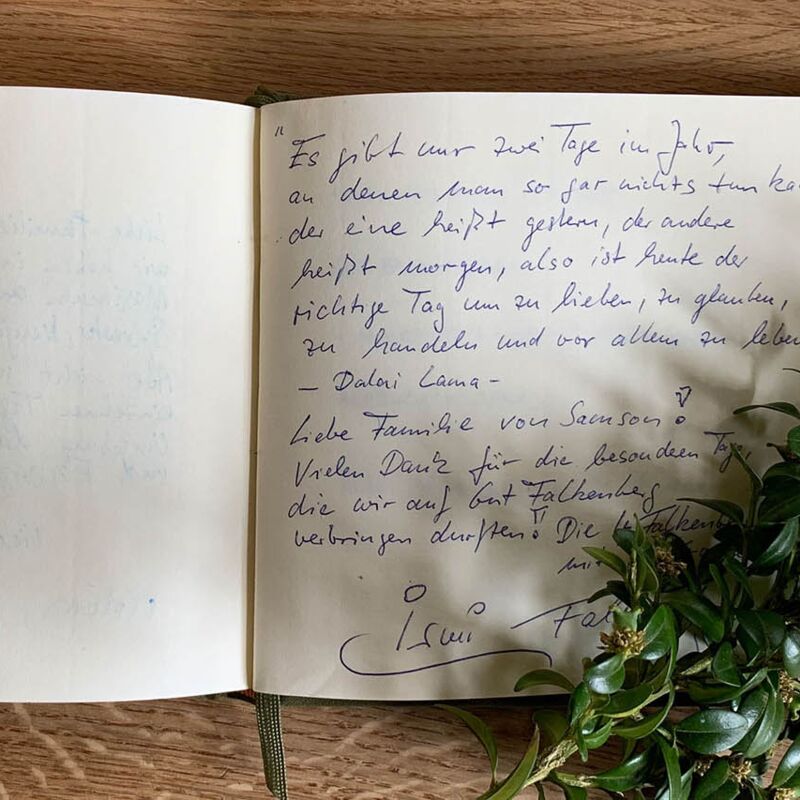 " Es gibt nur zwei Tage im Jahr,
an denen man so gar nichts tun
der eine heißt gestern, der andere
heißt morgen, also ist heute der
richtige Tag um zu lieben, zu glauben,
zu handeln und vor allem zu leben
– Dalai Lama –
Liebe Familie von Samson!
Vielen Dank für die besonderen Tage,
die wir auf Gut Falkenberg
verbringen durften! Die